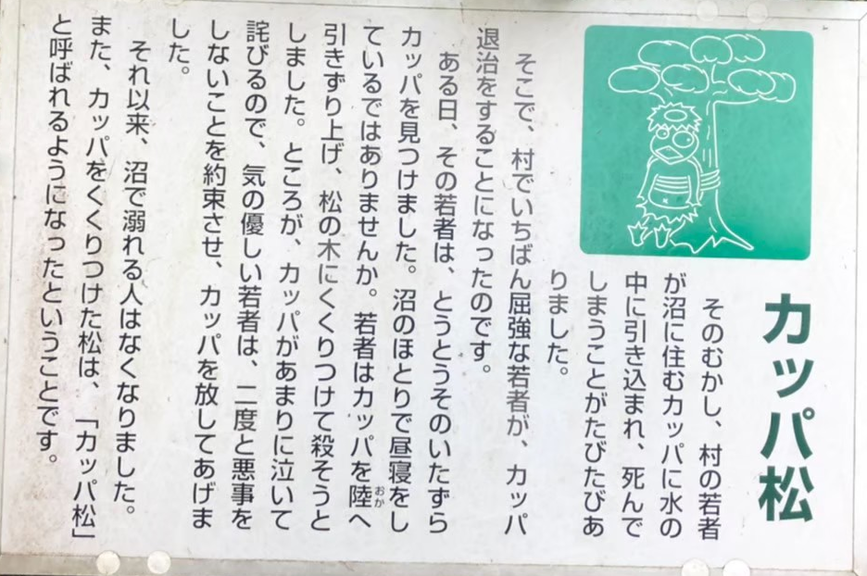 カッパ松
そのむかし、村の若者
が沼に住むカッパに水の
中に引き込まれ、死んで
しまうことがたびたびあ
りました。
そこで、村でいちばん屈強な若者が、カッパ
退治をすることになったのです。
ある日、その若者は、とうとうそのいたずら
カッパを見つけました。沼のほとりで昼寝をし
ているではありませんか。若者はカッパを陸へ
おか
引きずり上げ、松の木にくくりつけて殺そうと
しました。ところが、カッパがあまりに泣いて
詫びるので、気の優しい若者は、二度と悪事を
しないことを約束させ、カッパを放してあげま
した。
それ以来、沼で溺れる人はなくなりました。
また、カッパをくくりつけた松は、「カッパ松」
と呼ばれるようになったということです。